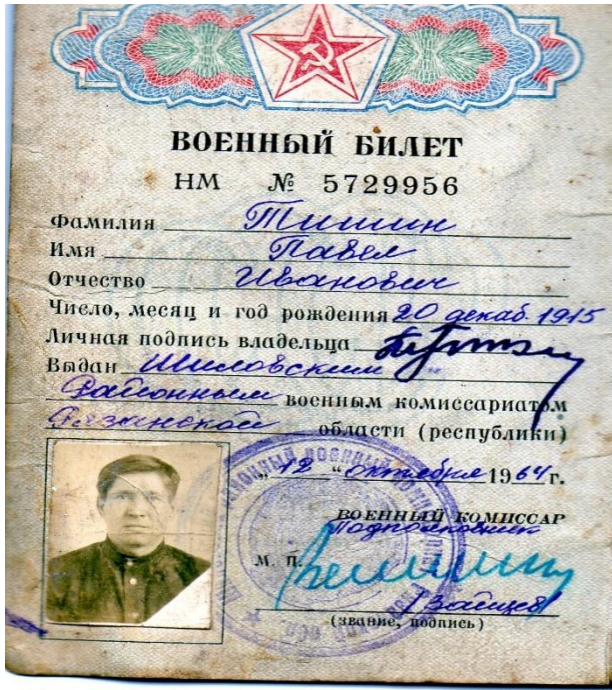 ВОЕННЫЙ БИЛЕТ
НМ № 5729956
Фамилия Тишин
Имя Павел
Отчество Иванович
Число, месяц и год рождения 20 декаб. 1915
Личная подпись владельца
Выдан Шиловским
Районным военным комиссариатом
Рязанской области (республики)
„ 12 “ октября 1964 г.
ВОЕННЫЙ КОМИССАР
Подполковник
М. П.
/Зайцев/
(звание, подпись)